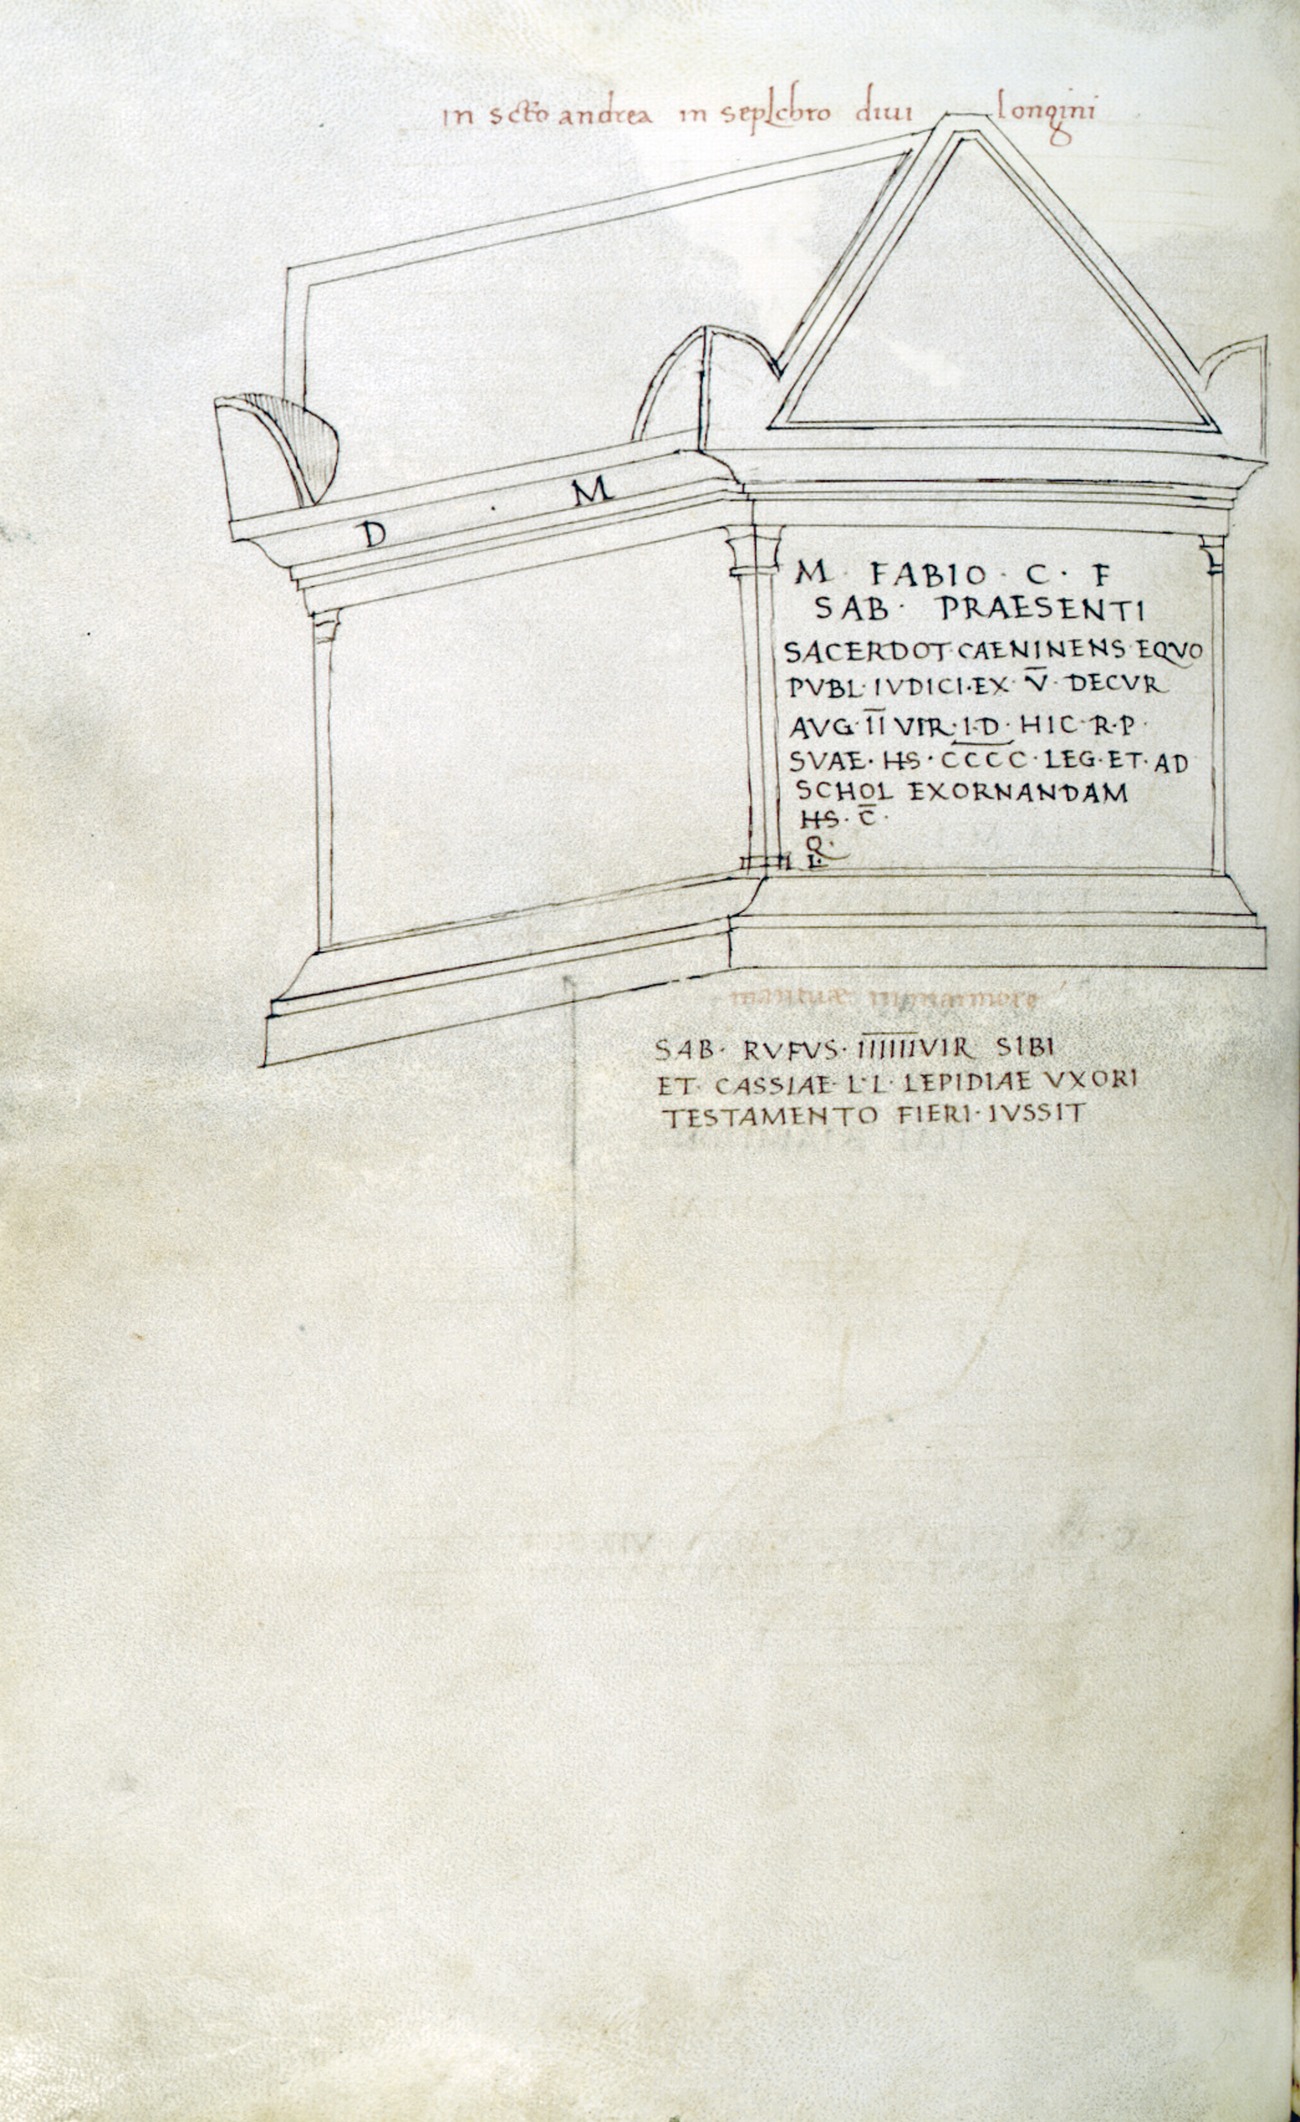 in scto andrea in seplchro diui longini
D · M
M · FABIO · C · F
SAB · PRAESENTI
SACERDOT·CAENINENS·EQVO
PVBL·IVDICI·EX·V̅·DECVR
AVG·I̅I̅VIR·I·D·HIC·R·P·
SVAE·HS·C̅C̅C̅C̅·LEG·ET·AD
SCHOL EXORNANDAM
HS·C̅·
mantuae in marmore
SAB·RVFVS·I̅I̅I̅I̅I̅I̅VIR SIBI
ET·CASSIAE·L·L·LEPIDIAE VXORI
TESTAMENTO FIERI·IVSSIT